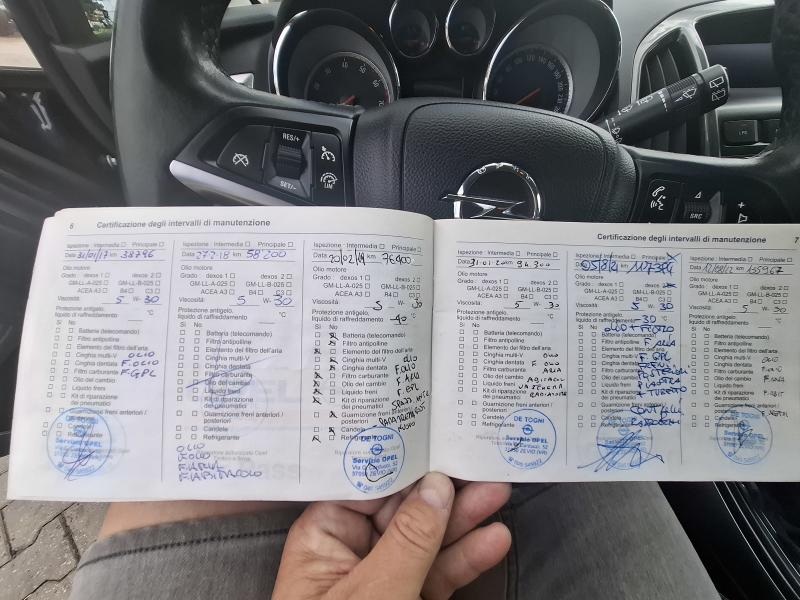 RES/+
SET/-
LIM
SRC
LPG
6
Certificazione degli intervalli di manutenzione
Ispezione: Intermedia Principale
Data 31/01/17 km 38796
Olio motore
Grado: dexos 1 dexos 2
GM-LL-A-025 GM-LL-B-025
ACEA A3 B4 C3
Viscosità: 5 W- 30
Protezione antigelo,
liquido di raffreddamento °C
Sì No
Batteria (telecomando)
Filtro antipolline
Elemento del filtro dell'aria
Cinghia multi-V OLIO
Cinghia dentata F.OLIO
Filtro carburante F.GPL
Olio del cambio
Liquido freni
Kit di riparazione
dei pneumatici
Guarnizione freni anteriori /
posteriori
Candele
Refrigerante
Servizio OPEL
Ispezione: Intermedia Principale
Data 27.2.18 km 58200
Olio motore
Grado: dexos 1 dexos 2
GM-LL-A-025 GM-LL-B-025
ACEA A3 B4 C3
Viscosità: 5 W- 30
Protezione antigelo,
liquido di raffreddamento °C
Sì No
Batteria (telecomando)
Filtro antipolline
Elemento del filtro dell'aria
Cinghia multi-V
Cinghia dentata
Filtro carburante
Olio del cambio
Liquido freni
Kit di riparazione
dei pneumatici
Guarnizioni freni anteriori /
posteriori
Candele
Refrigerante
OLIO
F.OLIO
F.ARIA
F.ABITACOLO
Ispezione: Intermedia Principale
Data 20/02/19 km 76400
Olio motore
Grado: dexos 1 dexos 2
GM-LL-A-025 GM-LL-B-025
ACEA A3 B4 C3
Viscosità: 5 W- 30
Protezione antigelo,
liquido di raffreddamento -40 °C
Sì No
Batteria (telecomando)
Filtro antipolline
Elemento del filtro dell'aria
Cinghia multi-V OLIO
Cinghia dentata F.OLIO
Filtro carburante F.ARIA
Olio del cambio F.GPL
Liquido freni
Kit di riparazione
dei pneumatici
Guarnizioni freni anteriori /
posteriori
Candele
Refrigerante
DE TOGNI
Servizio OPEL
Via G. Carducci, 52
37059 ZEVIO (VR)
7
Certificazione degli intervalli di manutenzione
Ispezione: Intermedia Principale
Data 31.01.20 km 94.300
Olio motore
Grado: dexos 1 dexos 2
GM-LL-A-025 GM-LL-B-025
ACEA A3 B4 C3
Viscosità: 5 W- 30
Protezione antigelo,
liquido di raffreddamento °C
Sì No
Batteria (telecomando)
Filtro antipolline
Elemento del filtro dell'aria
Cinghia multi-V OLIO
Cinghia dentata F OLIO
Filtro carburante ARIA
Olio del cambio
Liquido freni
Kit di riparazione
dei pneumatici
Guarnizioni freni anteriori /
posteriori
Candele
Refrigerante
DE TOGNI
Servizio OPEL
37059 ZEVIO (VR)
Ispezione: Intermedia Principale
Olio motore
Grado: dexos 1 dexos 2
GM-LL-A-025 GM-LL-B-025
ACEA A3 B4 C3
Viscosità: 5 W- 30
Protezione antigelo,
liquido di raffreddamento -30 °C
Sì No
Filtro antipolline F ARIA
Elemento del filtro dell'aria
Cinghia multi-V F.GPL
Cinghia dentata
Filtro carburante
Olio del cambio
Liquido freni
Kit di riparazione
dei pneumatici
Guarnizioni freni anteriori /
posteriori
Candele
Refrigerante
Servizio OPEL
Ispezione: Intermedia Principale
Olio motore
Grado: dexos 1 dexos 2
GM-LL-A-025 GM-LL-B-025
ACEA A3 B4 C3
Viscosità: 5 W- 30
Protezione antigelo,
liquido di raffreddamento °C
Sì No
Batteria (telecomando)
Filtro antipolline
Elemento del filtro dell'aria
Cinghia multi-V
Cinghia dentata
Filtro carburante
Olio del cambio
Liquido freni
Kit di riparazione
dei pneumatici
Guarnizioni freni anteriori /
posteriori
Candele
Refrigerante
DE TOGNI